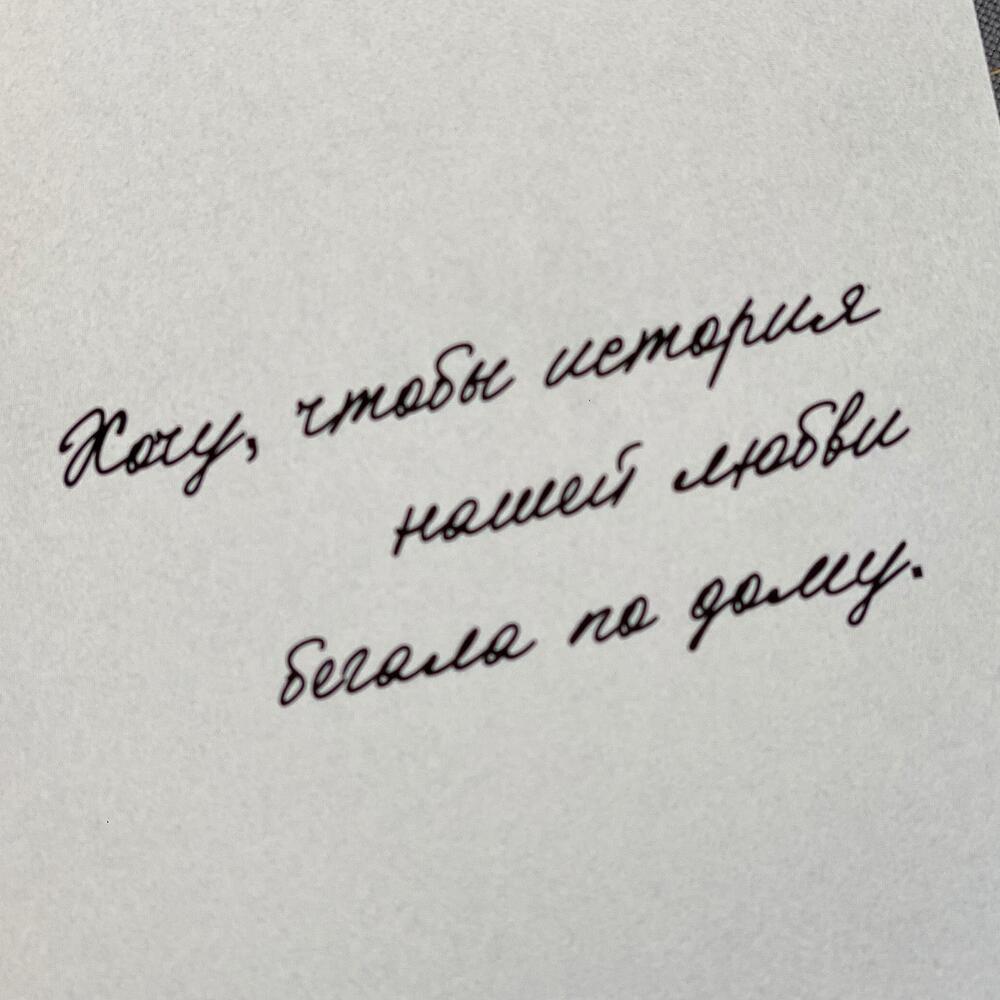 Хочу, чтобы история
нашей любви
бегала по дому.